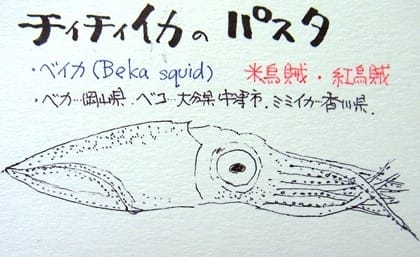 チイチイイカの パスタ
・ベイカ(Beka squid) 米烏賊・紅烏賊
・ベカ…岡山県.ベコ…大分県中津市.ミミイカ…香川県.